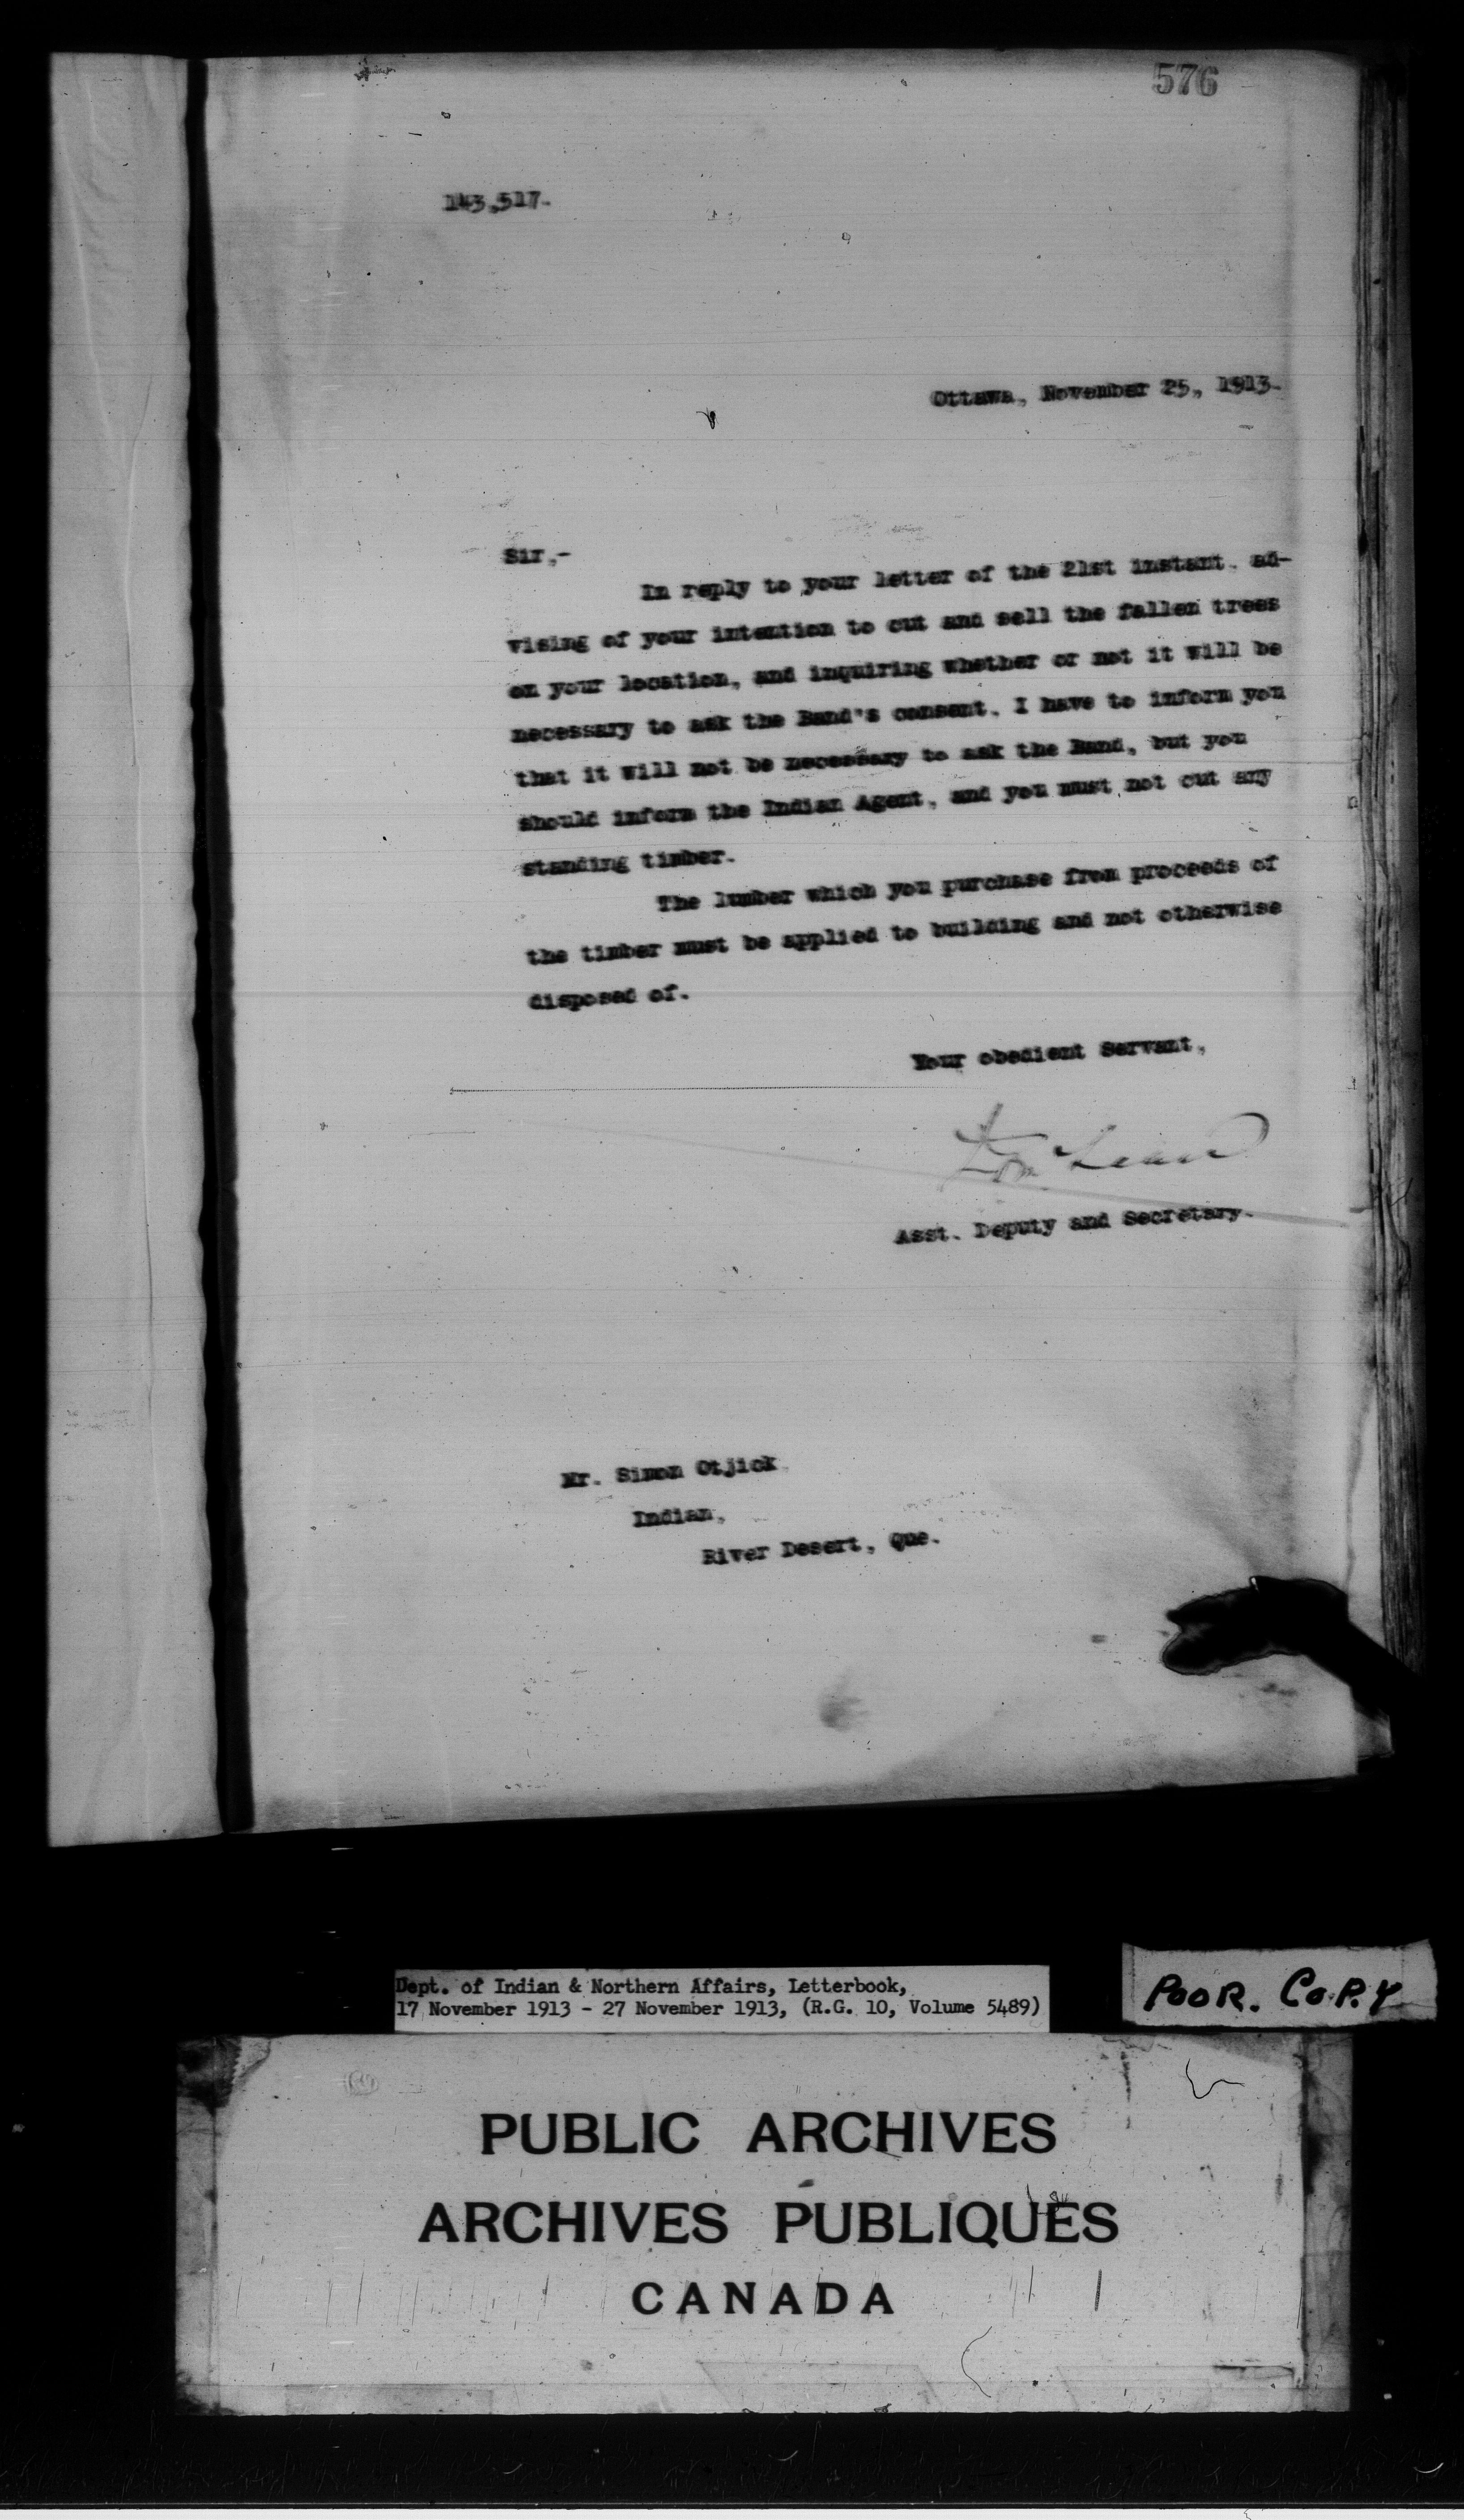 576
143,517.
Ottawa, November 25, 1913.
Sir,-
In reply to your letter of the 21st instant, ad-
vising of your intention to cut and sell the fallen trees
on your location, and inquiring whether or not it will be
necessary to ask the Band's consent, I have to inform you
that it will not be necessary to ask the Band, but you
should inform the Indian Agent, and you must not cut any
standing timber.
The lumber which you purchase from proceeds of
the timber must be applied to building and not otherwise
disposed of.
Your obedient Servant,
Asst. Deputy and Secretary.
Mr. Simon Otjick
Indian,
River Desert, Que.
Dept. of Indian & Northern Affairs, Letterbook,
17 November 1913 - 27 November 1913, (R.G. 10, Volume 5489)
POOR. COPY
PUBLIC ARCHIVES
ARCHIVES PUBLIQUES
CANADA